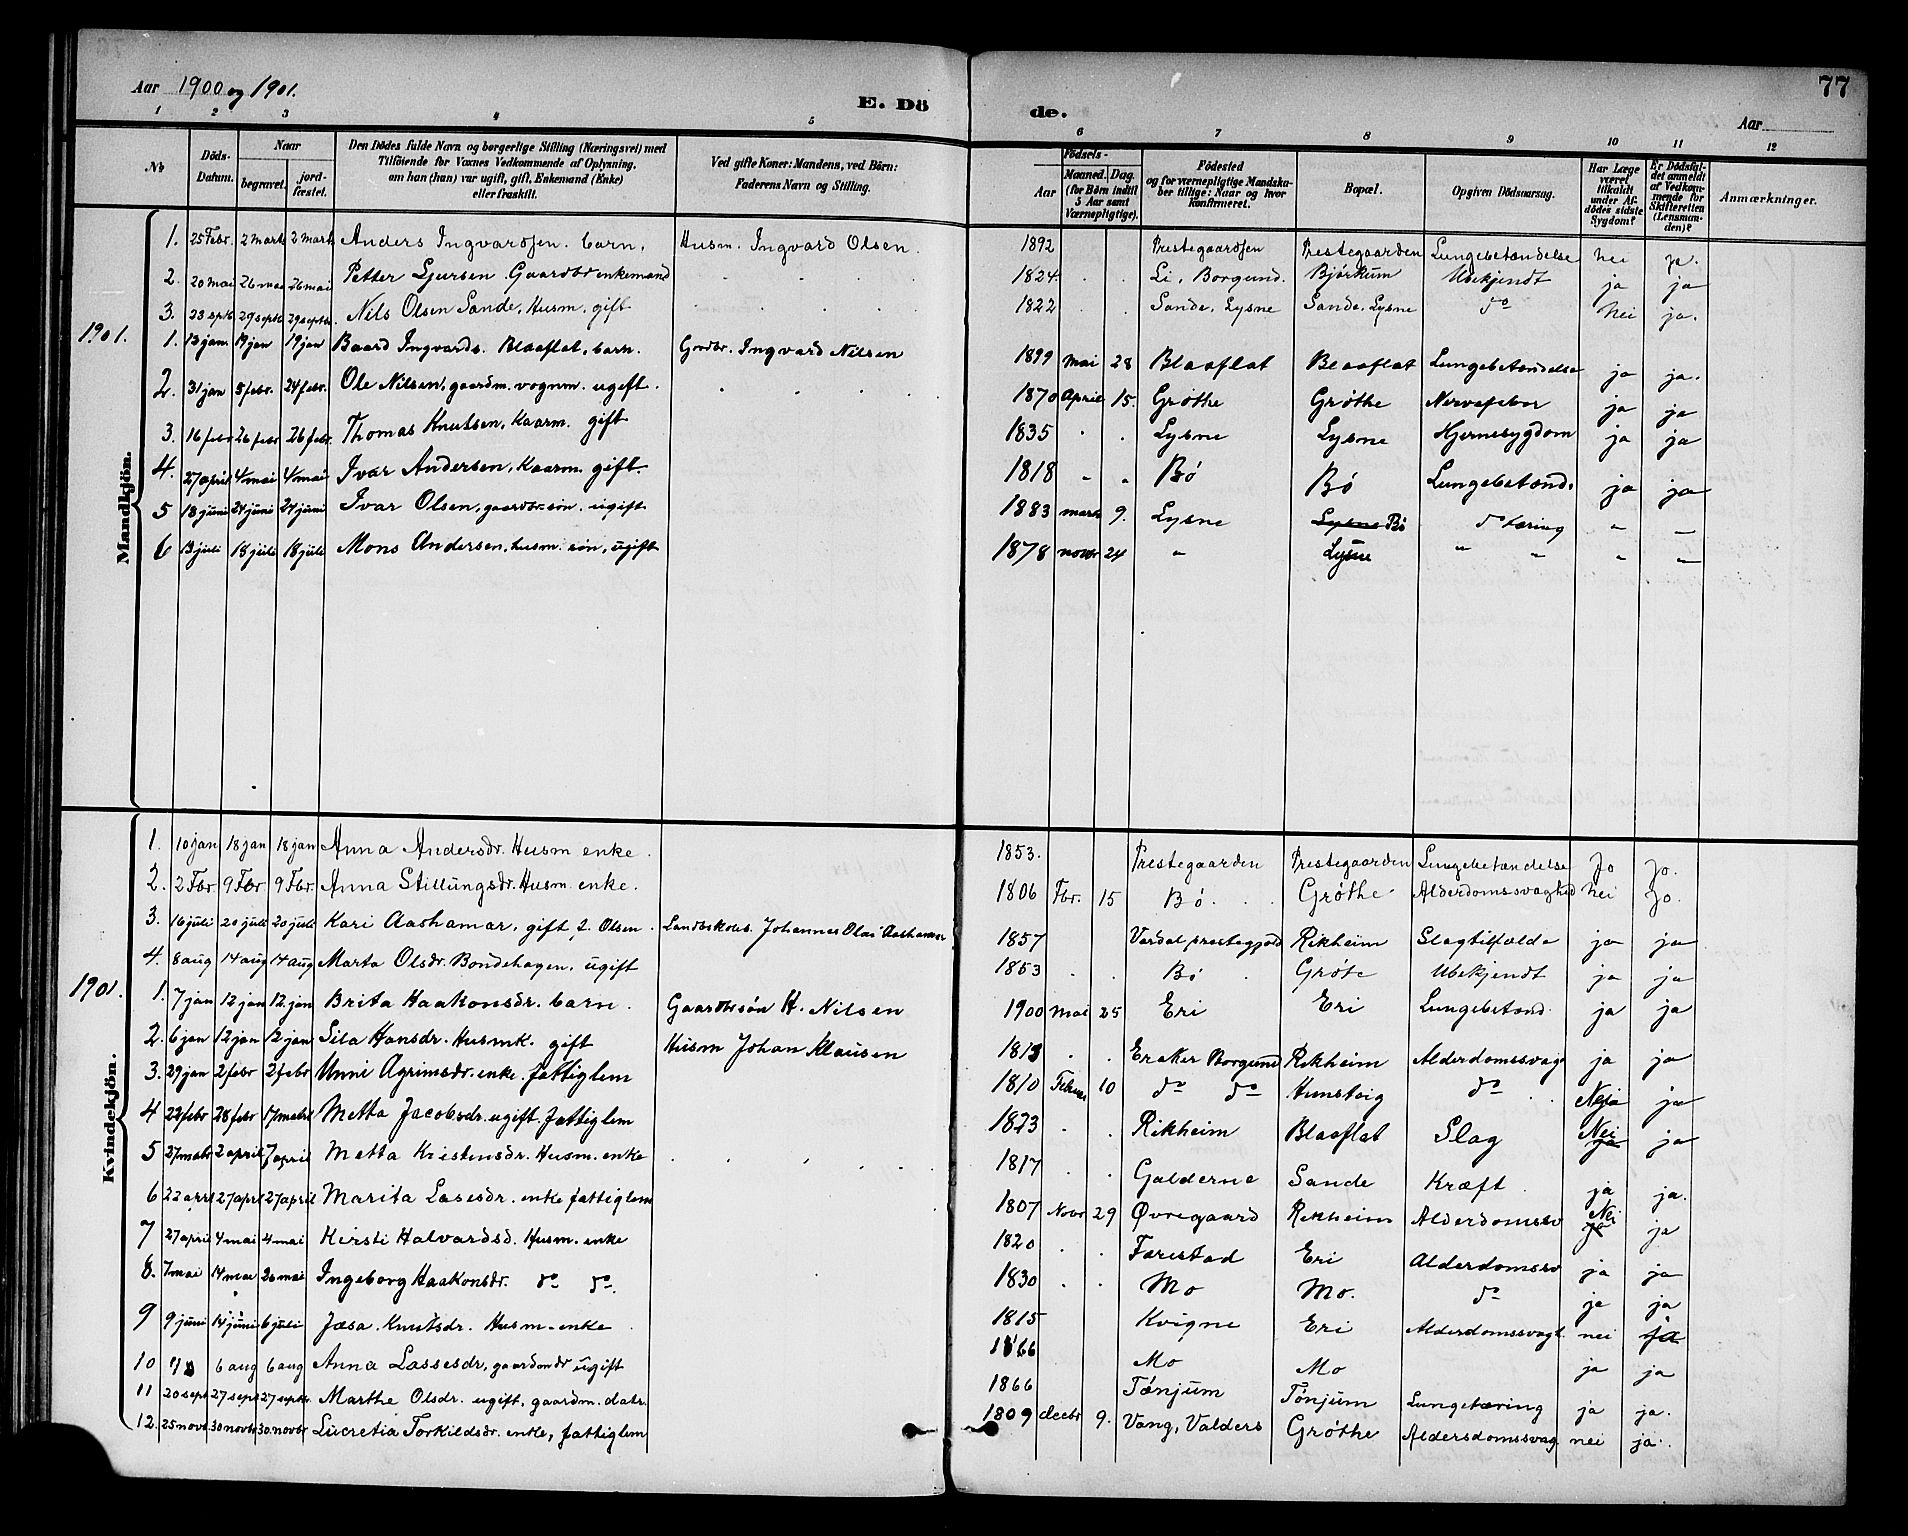 Aar 1900 og 1901.
E. Dö de.
77
Aar
1 2 3 4 5 6 7 8 9 10 11 12
No
Döds-Datum.
Naar begravet. jord-fæstet.
Den Dödes fulde Navn og borgerlige Stilling (Næringsvei) med Tilföiende for Voxnes Vedkommende af Oplysning, om han (hun) var ugift, gift, Enkemand (Enke) eller fraskilt.
Ved gifte Koner: Mandens, ved Börn: Faderens Navn og Stilling.
Födsels-
Aar Maaned. Dag. (for Börn indtil 5 Aar samt Værnepligtige).
Födested og for værnepligtige Mandska-ber tillige: Naar og hvor konfirmeret.
Bopæl.
Opgiven Dödsaarsag.
Har Læge været tilkaldt under Af-dödes sidste Sygdom?
Er Dödsfal-det anmeldt af Vedkom-mende for Skifteretten (Lensman-den)?
Anmærkninger.
Mandkjön.
1. 25 Febr. 2 mart 2 mart Anders Ingvardsen. barn. Husm. Ingvard Olsen. 1892 Prestegaardsen Prestegaarden Lungebetændelse nei ja.
2. 20 mai 26 mai 26 mai Petter Sjursen Gaardbr enkemand 1824 Li, Borgund. Bjørkum Ubekjendt ja ja
3. 23 sptb 29 septb 29 septbr. Nils Olsen Sande, Husm, gift 1822 Sande, Lysne Sande, Lysne do Nei ja.
1901. 1. 13 jan. 19 jan 19 jan Baard Ingvards. Blaaflat, barn. Grdbr. Ingvard Nilsen 1899 mai 28 Blaaflat Blaaflat Lungebetændelse ja ja.
2. 31 jan 5 febr. 24 febr. Ole Nilsen, gaardm. vognm. ugift. 1870 April 15. Grøthe Grøthe Nervefeber ja ja
3. 16 febr 26 febr 26 febr. Thomas Knutsen, Kaarm. gift 1835 Lysne Lysne Hjernesygdom ja ja
4. 27 april 4 mai 4 mai Ivar Andersen, Kaarm. gift. 1818 Bø Bø Lungebetænd. ja ja
5 18 juni 24 juni 24 juni Ivar Olsen, gaardbr. søn. ugift 1883 marts 9. Lysne Lysne Bø do tæring " —
6 13 juli 18 juli 18 juli Mons Andersen, husm. søn, ugift 1878 novbr 24 " Lysne " " " —
Kvindekjön.
1. 10 jan 18 jan 18 jan Anna Andersdr. Husm enke. 1853. Prestegaarden Prestegaarden Lungebetændelse Jo Jo.
2. 2 Fbr. 9 Fbr. 9 Fbr. Anna Stillungsdr. Husm. enke. 1806 Fbr. 15 Bø. Grøthe Alderdomssvaghed nei Jo.
3. 16 juli 20 juli 20 juli Kari Aashamar, gift, f. Olsen. Landhskols. Johannes Olai Aashamar 1857 Vardal prestegjæld Rikheim Slagtilfælde ja ja
4. 8 aug 14 aug 14 aug Marta Olsdr. Bondehagen, ugift 1853 Bø Grøte Ubekjendt ja ja
1901. 1. 7 jan 12 jan 12. jan Brita Haakonsdr. barn. Gaardbrsøn H. Nilsen 1900 mai 25 Eri Eri Lungebetænd. ja ja
2. 6 jan 12 jan 12 jan Sila Hansdr. Husmk. gift Husm Johan Klausen 1813 Eraker Borgund Rikheim Alderdomssvag ja ja
3. 29 jan 2 febr 2 febr Unni Agrimsdr. enke. fattiglem 1810 Februar 10 do do Hunstvig do Nei ja
4 22 febr 28 febr 17 marts Metta Jacobsdr. ugift. fattiglem 1823 Rikheim Blaaflat Slag Nei ja
5 27 marts 2 april 7 april Metta Kristensdr. Husm. enke 1817 Galderne Sande Kræft ja ja.
6 22 april 27 april 27 april Marita Lasesdr. enke fattiglem 1807 Novbr 29 Øvregaard Rikheim Alderdomssv Nei ja
7 27 april 4 mai 4 mai Kirsti Halvardsd. Husm. enke 1820 Farestad Eri Alderdomssv ja ja
8. 7 mai 14 mai 26 mai Ingeborg Haakonsdr. do do. 1830 Mo Mo. do ja ja
9 9 juni 14 juni 6 juli Jæsa. Knutsdr. Husm. enke 1815 Kvigne Eri Alderdomssvagt. nei ja
10 6 aug 6 aug Anna Lassesdr, gaardmdr ugift 1866 Mo Mo ja ja
11 20 sept 27 sept 27 septbr Marthe Olsdr. ugift, gaardm. datr. 1866 Tønjum Tønjum Lungetæring ja ja.
12. 25 novb 30 novbr 30. novbr Lucretia Torkildsdr. enke, fattiglem 1809 decbr 9. Vang, Valders Grøthe Aldersdomssvag nei ja.